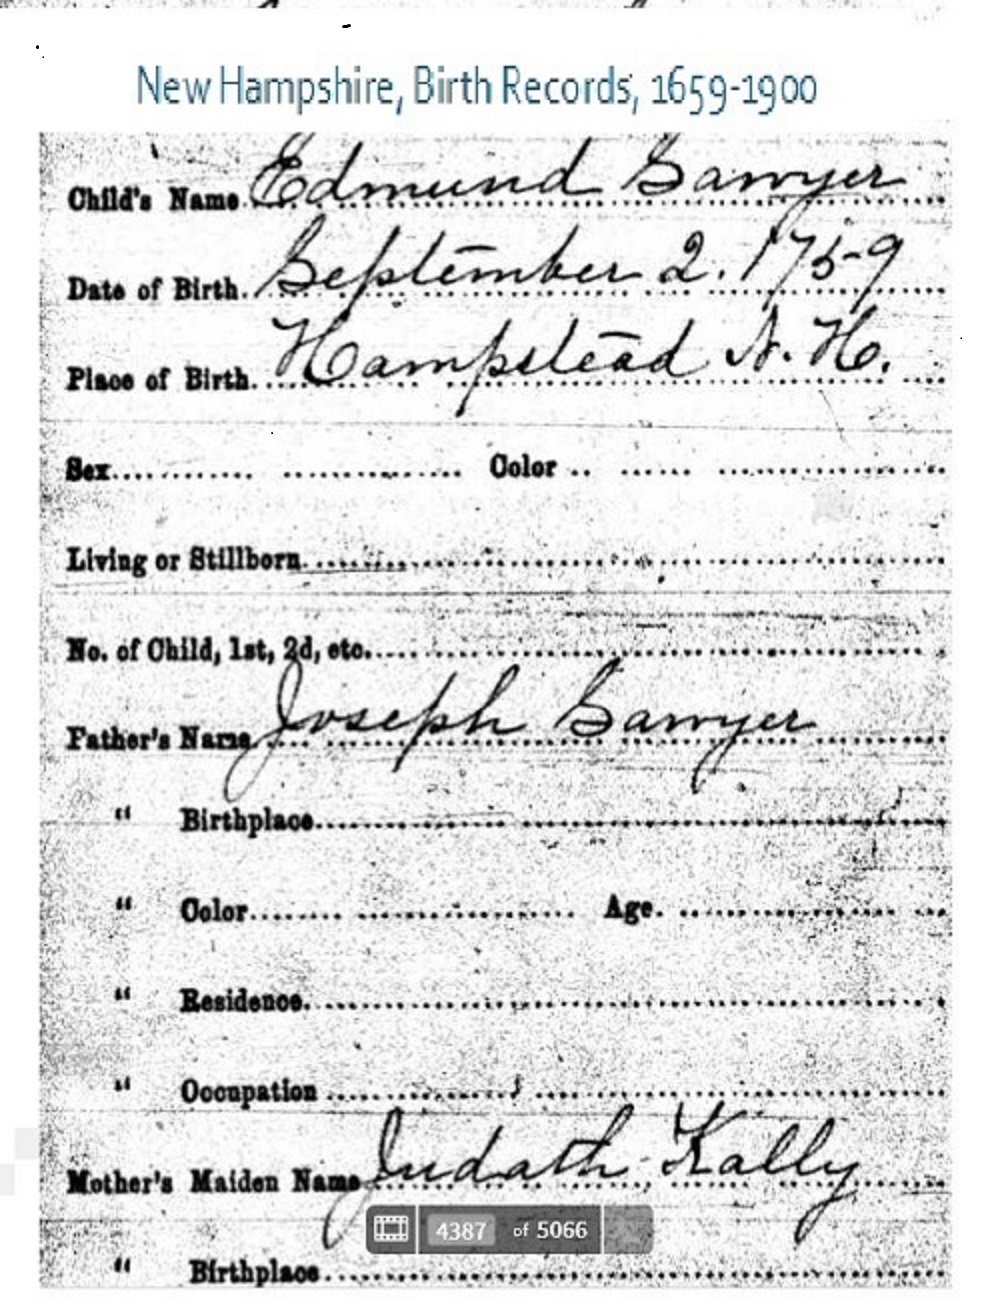 New Hampshire, Birth Records, 1659-1900
Child's Name Edmund Sawyer
Date of Birth. September 2. 1759
Place of Birth. Hampstead N. H.
Sex Color
Living or Stillborn.
No. of Child, 1st, 2d, etc.
Father's Name Joseph Sawyer
" Birthplace
" Color Age.
" Residence.
" Occupation
Mother's Maiden Name Judath Kally
4387 of 5066
" Birthplace